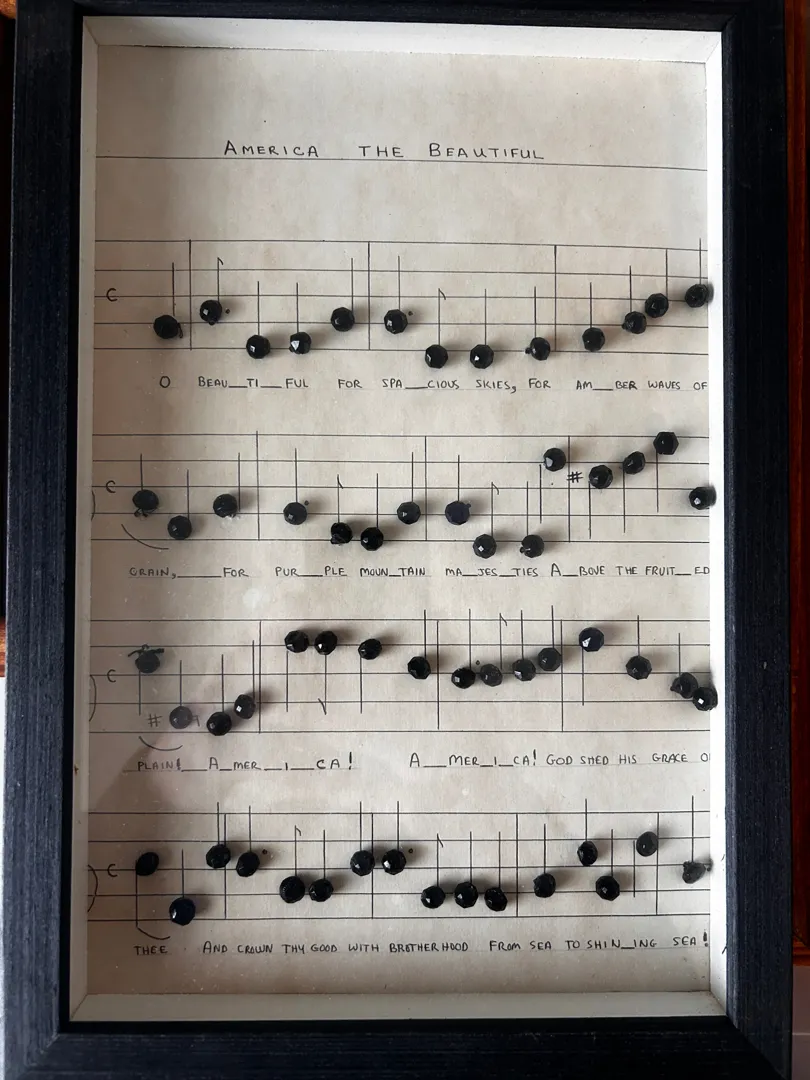 AMERICA THE BEAUTIFUL
C
O BEAU__TI__FUL FOR SPA__CIOUS SKIES, FOR AM__BER WAVES OF
C #
GRAIN,____FOR PUR__PLE MOUN__TAIN MA__JES__TIES A__BOVE THE FRUIT__ED
C #
PLAIN!__A__MER__I__CA! A__MER__I__CA! GOD SHED HIS GRACE O
C
THEE AND CROWN THY GOOD WITH BROTHERHOOD FROM SEA TO SHIN__ING SEA!